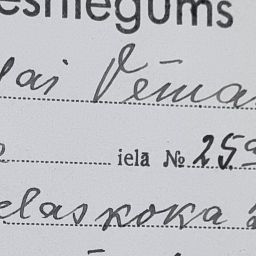 esniegums
lai Vēma
iela № 259
elaskoka